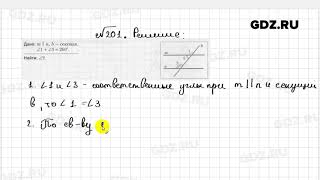 GDZ.RU
№201. Решение:
Дано: m || n, b – секущая,
∠1 + ∠3 = 260°.
Найти: ∠2.
1. ∠1 и ∠3 – соответственные углы при m || n и секущей
b, то ∠1 = ∠3
2. По св-ву